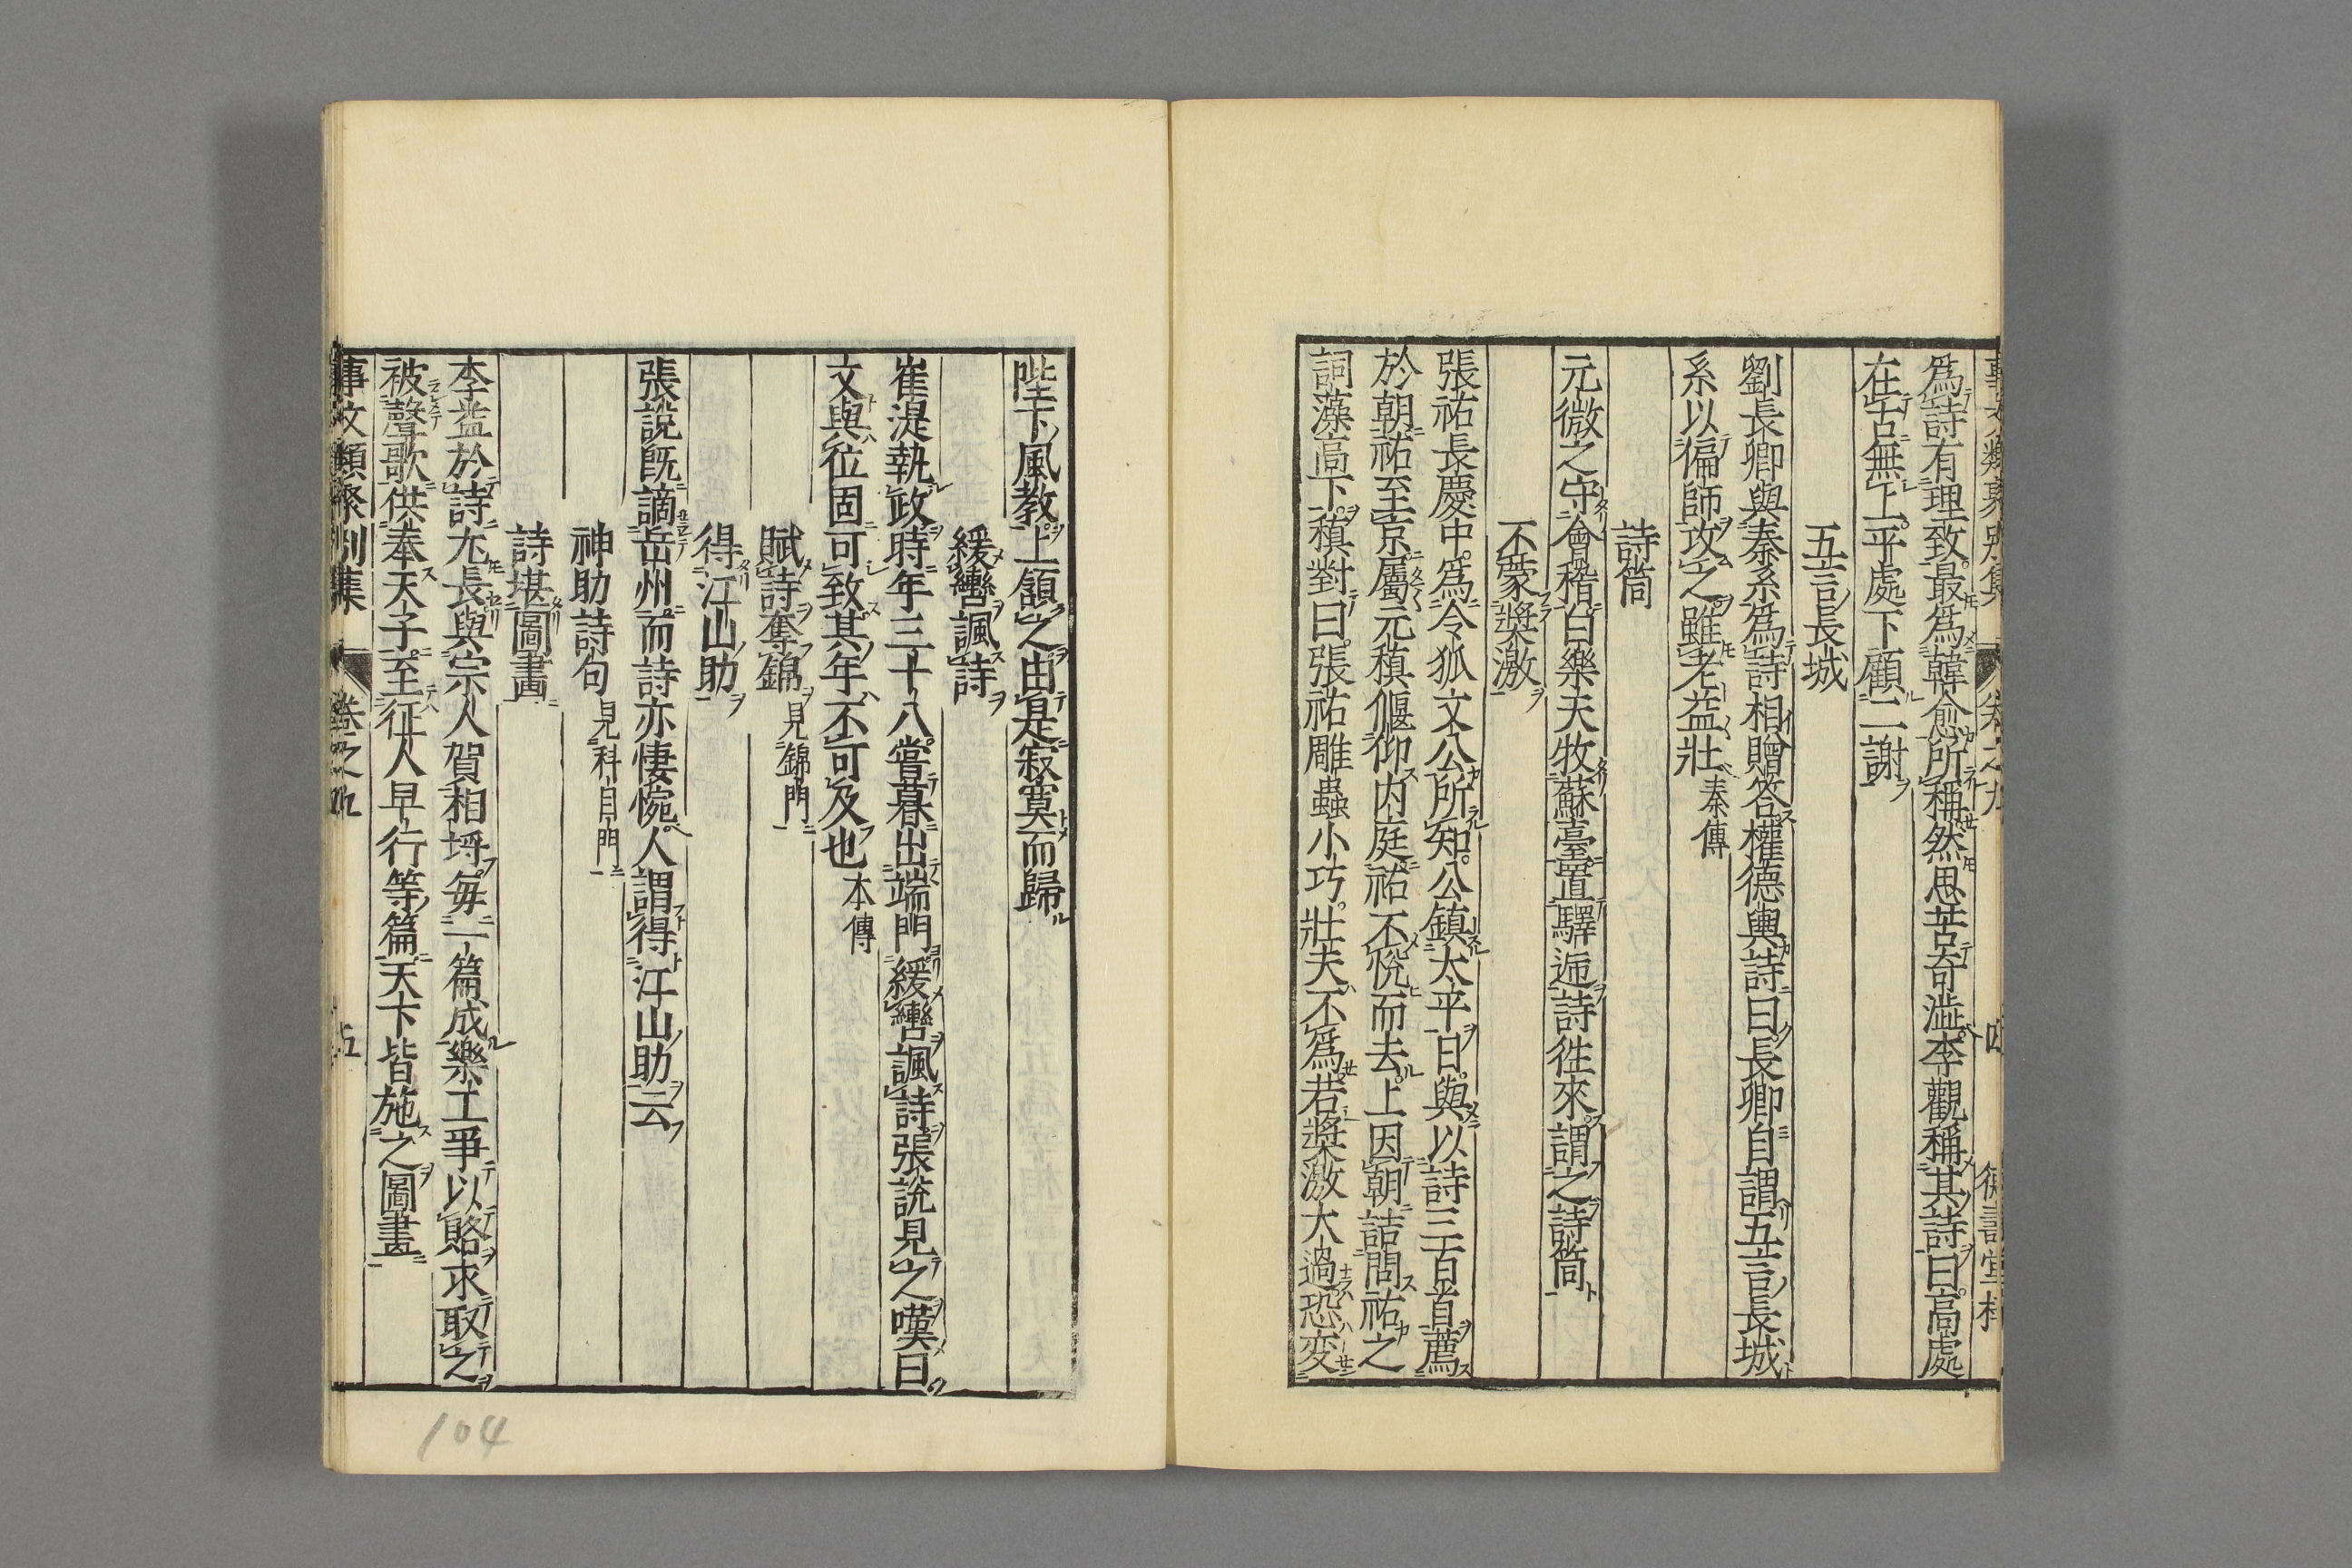 爲詩有理致最爲韓愈所稱然思苦奇澁李觀稱其詩曰高處
在古無上平處下顧二謝
五言長城
劉長卿與秦系爲詩相贈答權德輿詩曰長卿自謂五言長城
系以偏師攻之雖老益壯 秦傳
詩筒
元微之守會稽白樂天牧蘇臺置驛逓詩徃來謂之詩筒
不蒙奬激
張祐長慶中爲令狐文公所知公鎮太平日與以詩三百首薦
於朝祐至京屬元稹偃仰内庭祐不悅而去上因朝詰問祐之
詞藻高下稹對曰張祐雕蟲小巧壯夫不爲若奬激大過恐変
陛下風教上頷之由是寂寞而歸
緩轡諷詩
崔湜執政時年三十八嘗暮出端門緩轡諷詩張說見之嘆曰
文與位固可致其年不可及也 本傳
賦詩奪錦 見錦門
得江山助
張說旣謫岳州而詩亦悽惋人謂得江山助云
神助詩句 見科目門
詩堪圖畫
李益於詩尤長與宗人賀相埒毎一篇成樂工爭以賂求取之
被聲歌供奉天子至征人早行等篇天下皆施之圖畫
事文類聚別集 卷之九 五
104